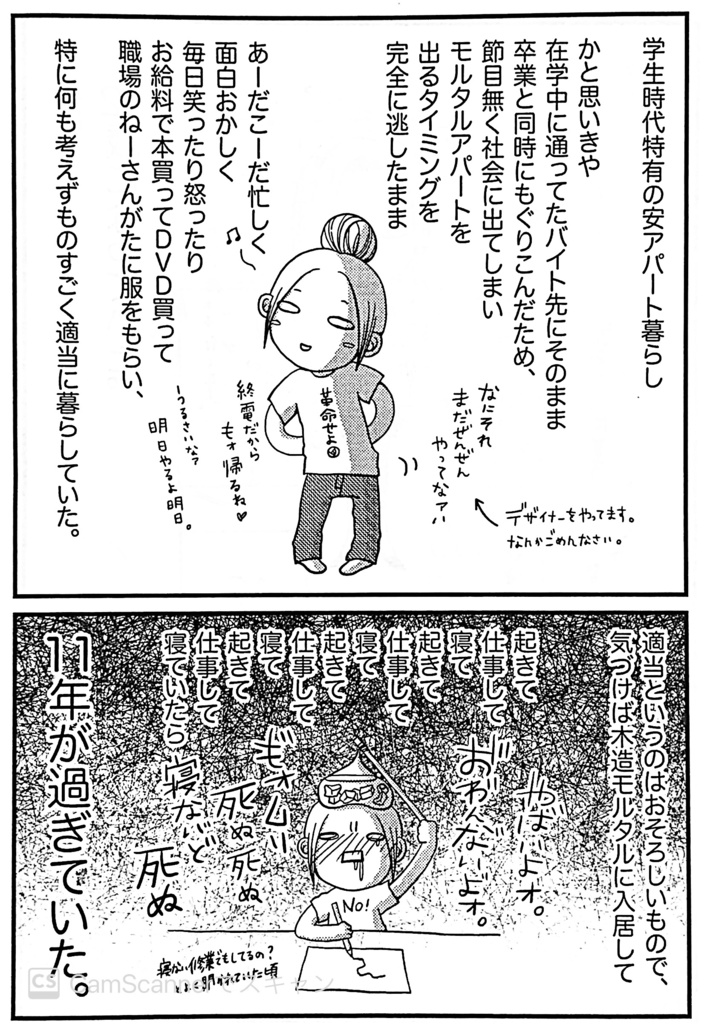 学生時代特有の安アパート暮らし
かと思いきや
在学中に通ってたバイト先にそのまま
卒業と同時にもぐりこんだため、
節目無く社会に出てしまい
モルタルアパートを
出るタイミングを
完全に逃したまま
あーだこーだ忙しく
面白おかしく
毎日笑ったり怒ったり
お給料で本買ってDVD買って
職場のねーさんがたに服をもらい、
特に何も考えずものすごく適当に暮らしていた。
革命せよ
なにそれ
まだぜんぜん
やってなァい
デザイナーをやってます。
なんかごめんなさい。
終電だから
もォ帰るね♥
うるさいなァ
明日やるよ明日。
適当というのはおそろしいもので、
気づけば木造モルタルに入居して
起きて
仕事して
寝て
起きて
仕事して
寝て
起きて
仕事して
寝て
起きて
仕事して
寝ていたら
11年が過ぎていた。
やばいよォ。
おわんないよォ。
ギォムリ
死ぬ死ぬ
寝ないと
死ぬ
No!
寝ない修業でもしてるの?
とよく聞かれていた頃
CS CamScannerでスキャン